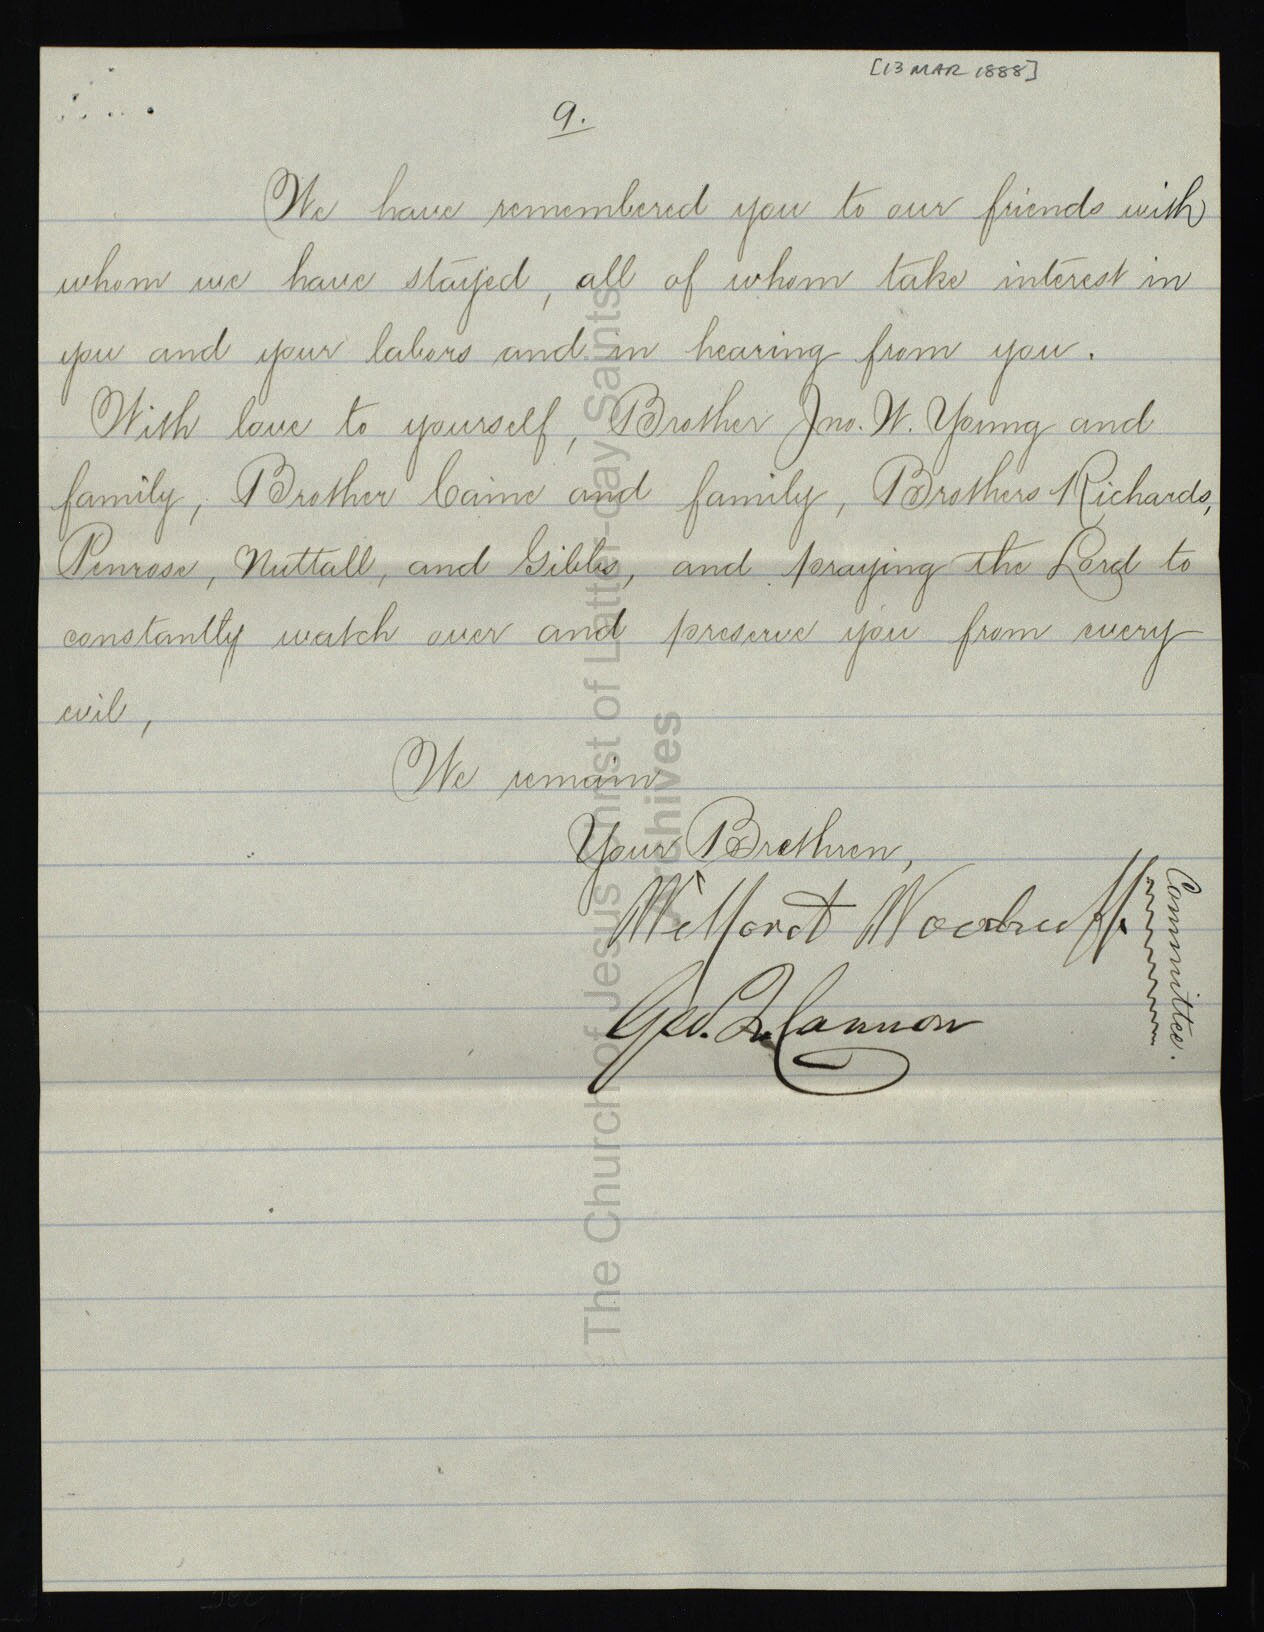 [13 MAR 1888]
9.
We have remembered you to our friends with
whom we have stayed, all of whom take interest in
you and your labors and in hearing from you.
With love to yourself, Brother Jno. W. Young and
family, Brother Caine and family, Brothers Richards,
Penrose, Nuttall, and Gibbs, and praying the Lord to
constantly watch over and preserve you from every
evil,
We remain
Your Brethren,
Wilford Woodruff
Geo. Q. Cannon
Committee.
The Church of Jesus Christ of Latter-day Saints
Archives